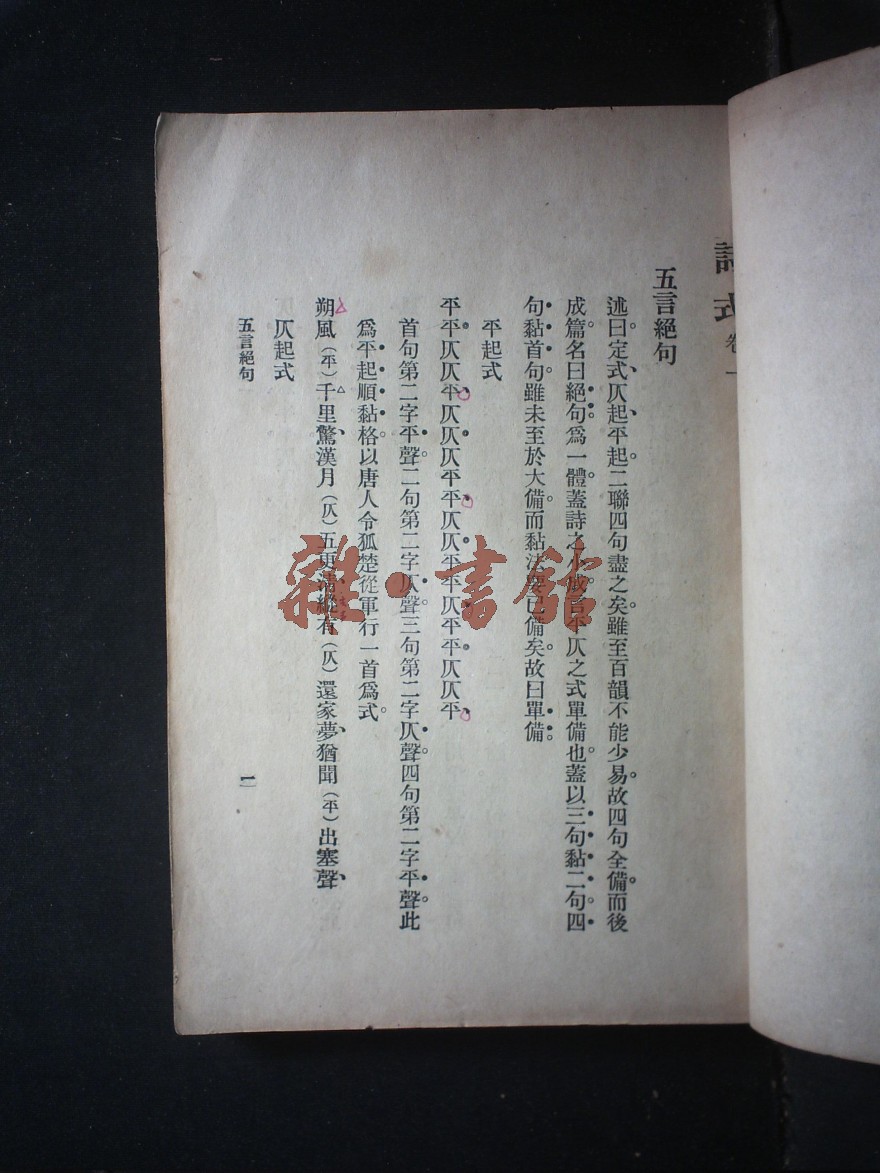 詩式 卷一
五言絕句
述曰定式仄起平起二聯四句盡之矣雖至百韻不能少易故四句全備而後
成篇名曰絕句爲一體蓋詩之小成言平仄之式單備也蓋以三句黏二句四
句黏首句雖未至於大備而黏法要已備矣故曰單備
平起式
平平仄仄平仄仄仄平平仄仄平平仄平平仄仄平
首句第二字平聲二句第二字仄聲三句第二字仄聲四句第二字平聲此
爲平起順黏格以唐人令狐楚從軍行一首爲式
朔風(平)千里驚漢月(仄)五更淸縱有(仄)還家夢猶聞(平)出塞聲
仄起式
五言絕句
一
雜·書館